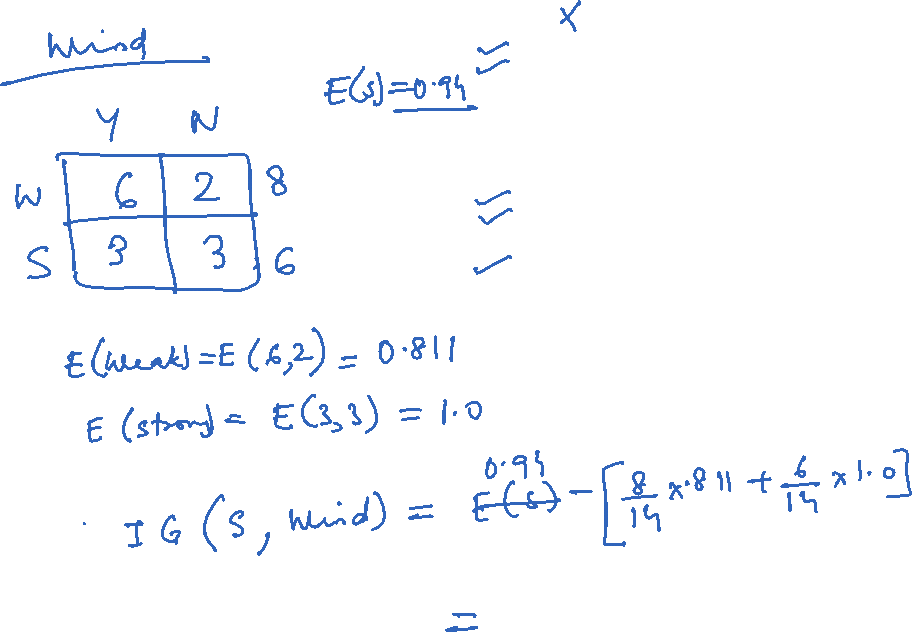 x
Wind
E(s)=0.94
Y N
W 6 2 8
S 3 3 6
E(Weak)=E(6,2) = 0.811
E(strong) = E(3,3) = 1.0
0.94
IG(S, Wind) = E(s) - [8/14 x .811 + 6/14 x 1.0]
=